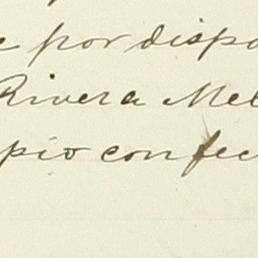 e por dispo
Rivera Mel
pio con fec